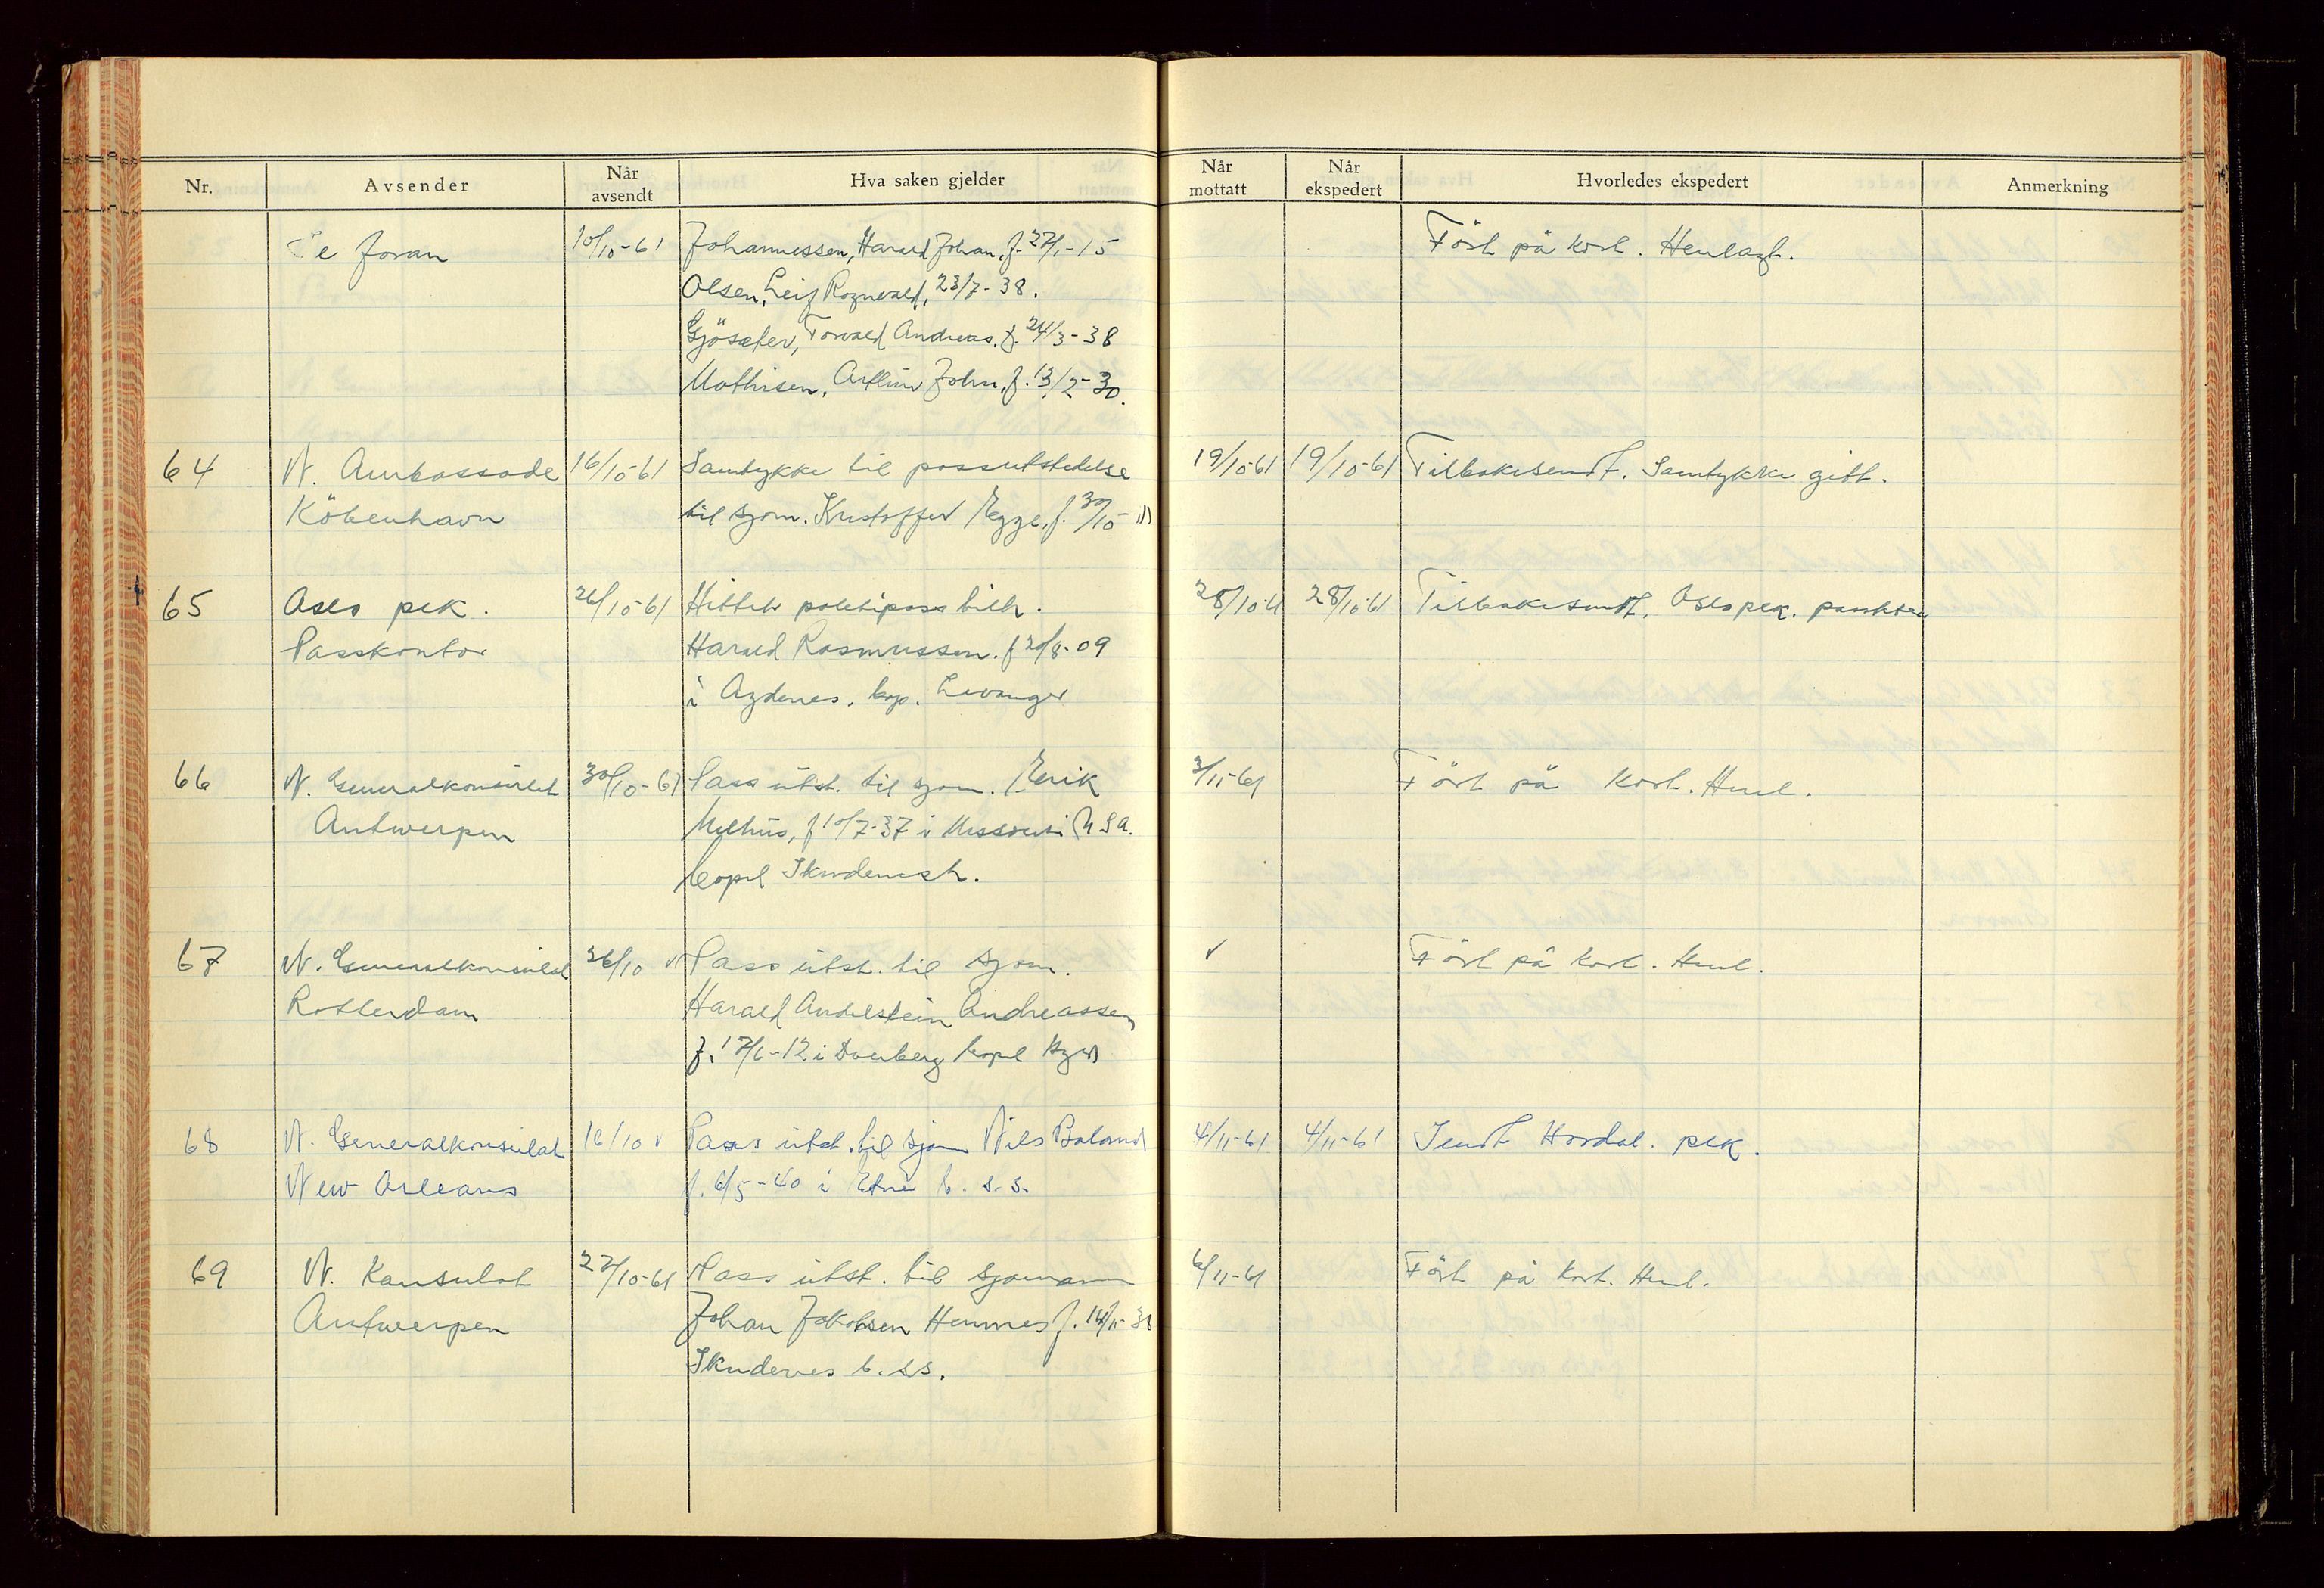 Nr. Avsender Når avsendt Hva saken gjelder Når mottatt Når ekspedert Hvorledes ekspedert Anmerkning
Se foran 10/10-61 Johannessen, Harald Johan, f. 27/1-15 Ført på kort. Henlagt.
Olsen, Leif Rognvald, 23/7-38.
Gjösæter, Torvald Andreas, f. 24/3-38
Mathisen, Arthur John, f. 13/2-30.
64 N. Ambassade 16/10-61 Samtykke til passutstedelse 19/10-61 19/10-61 Tilbakesendt. Samtykke gitt.
København til sjøm. Kristoffer Egge, f. 30/10-
65 Oslo pck. 26/10-61 Hittet politipass tilh. 28/10-61 28/10-61 Tilbakesendt. Oslo pck.
Passkontor Harald Rasmussen. f 20/8-09
i Agdenes. bop. Levanger
66 N. Generalkonsulat 30/10-61 Pass utst. til sjøm. Erik 3/11-61 Ført på kort. Henl.
Antwerpen Melhus, f 10/7-37 i Missouri USA.
bopel Skudenesh.
67 N. Generalkonsulat 26/10 Pass utst. til sjøm. Ført på kort. Henl.
Rotterdam Harald Andreassen
f. 17/6-12 i bopel
68 N. Generalkonsulat 16/10 Pass utst. til sjøm Nils Baland 4/11-61 4/11-61 Sendt Hordal. pck.
New Orleans f. 6/5-40 i Etne b. s. s.
69 N. Konsulat 27/10-61 Pass utst. til sjømann 6/11-61 Ført på kort. Henl.
Antwerpen Johan Jakobsen Hemnes f. 14/11-38
Skudenes b. s.s.